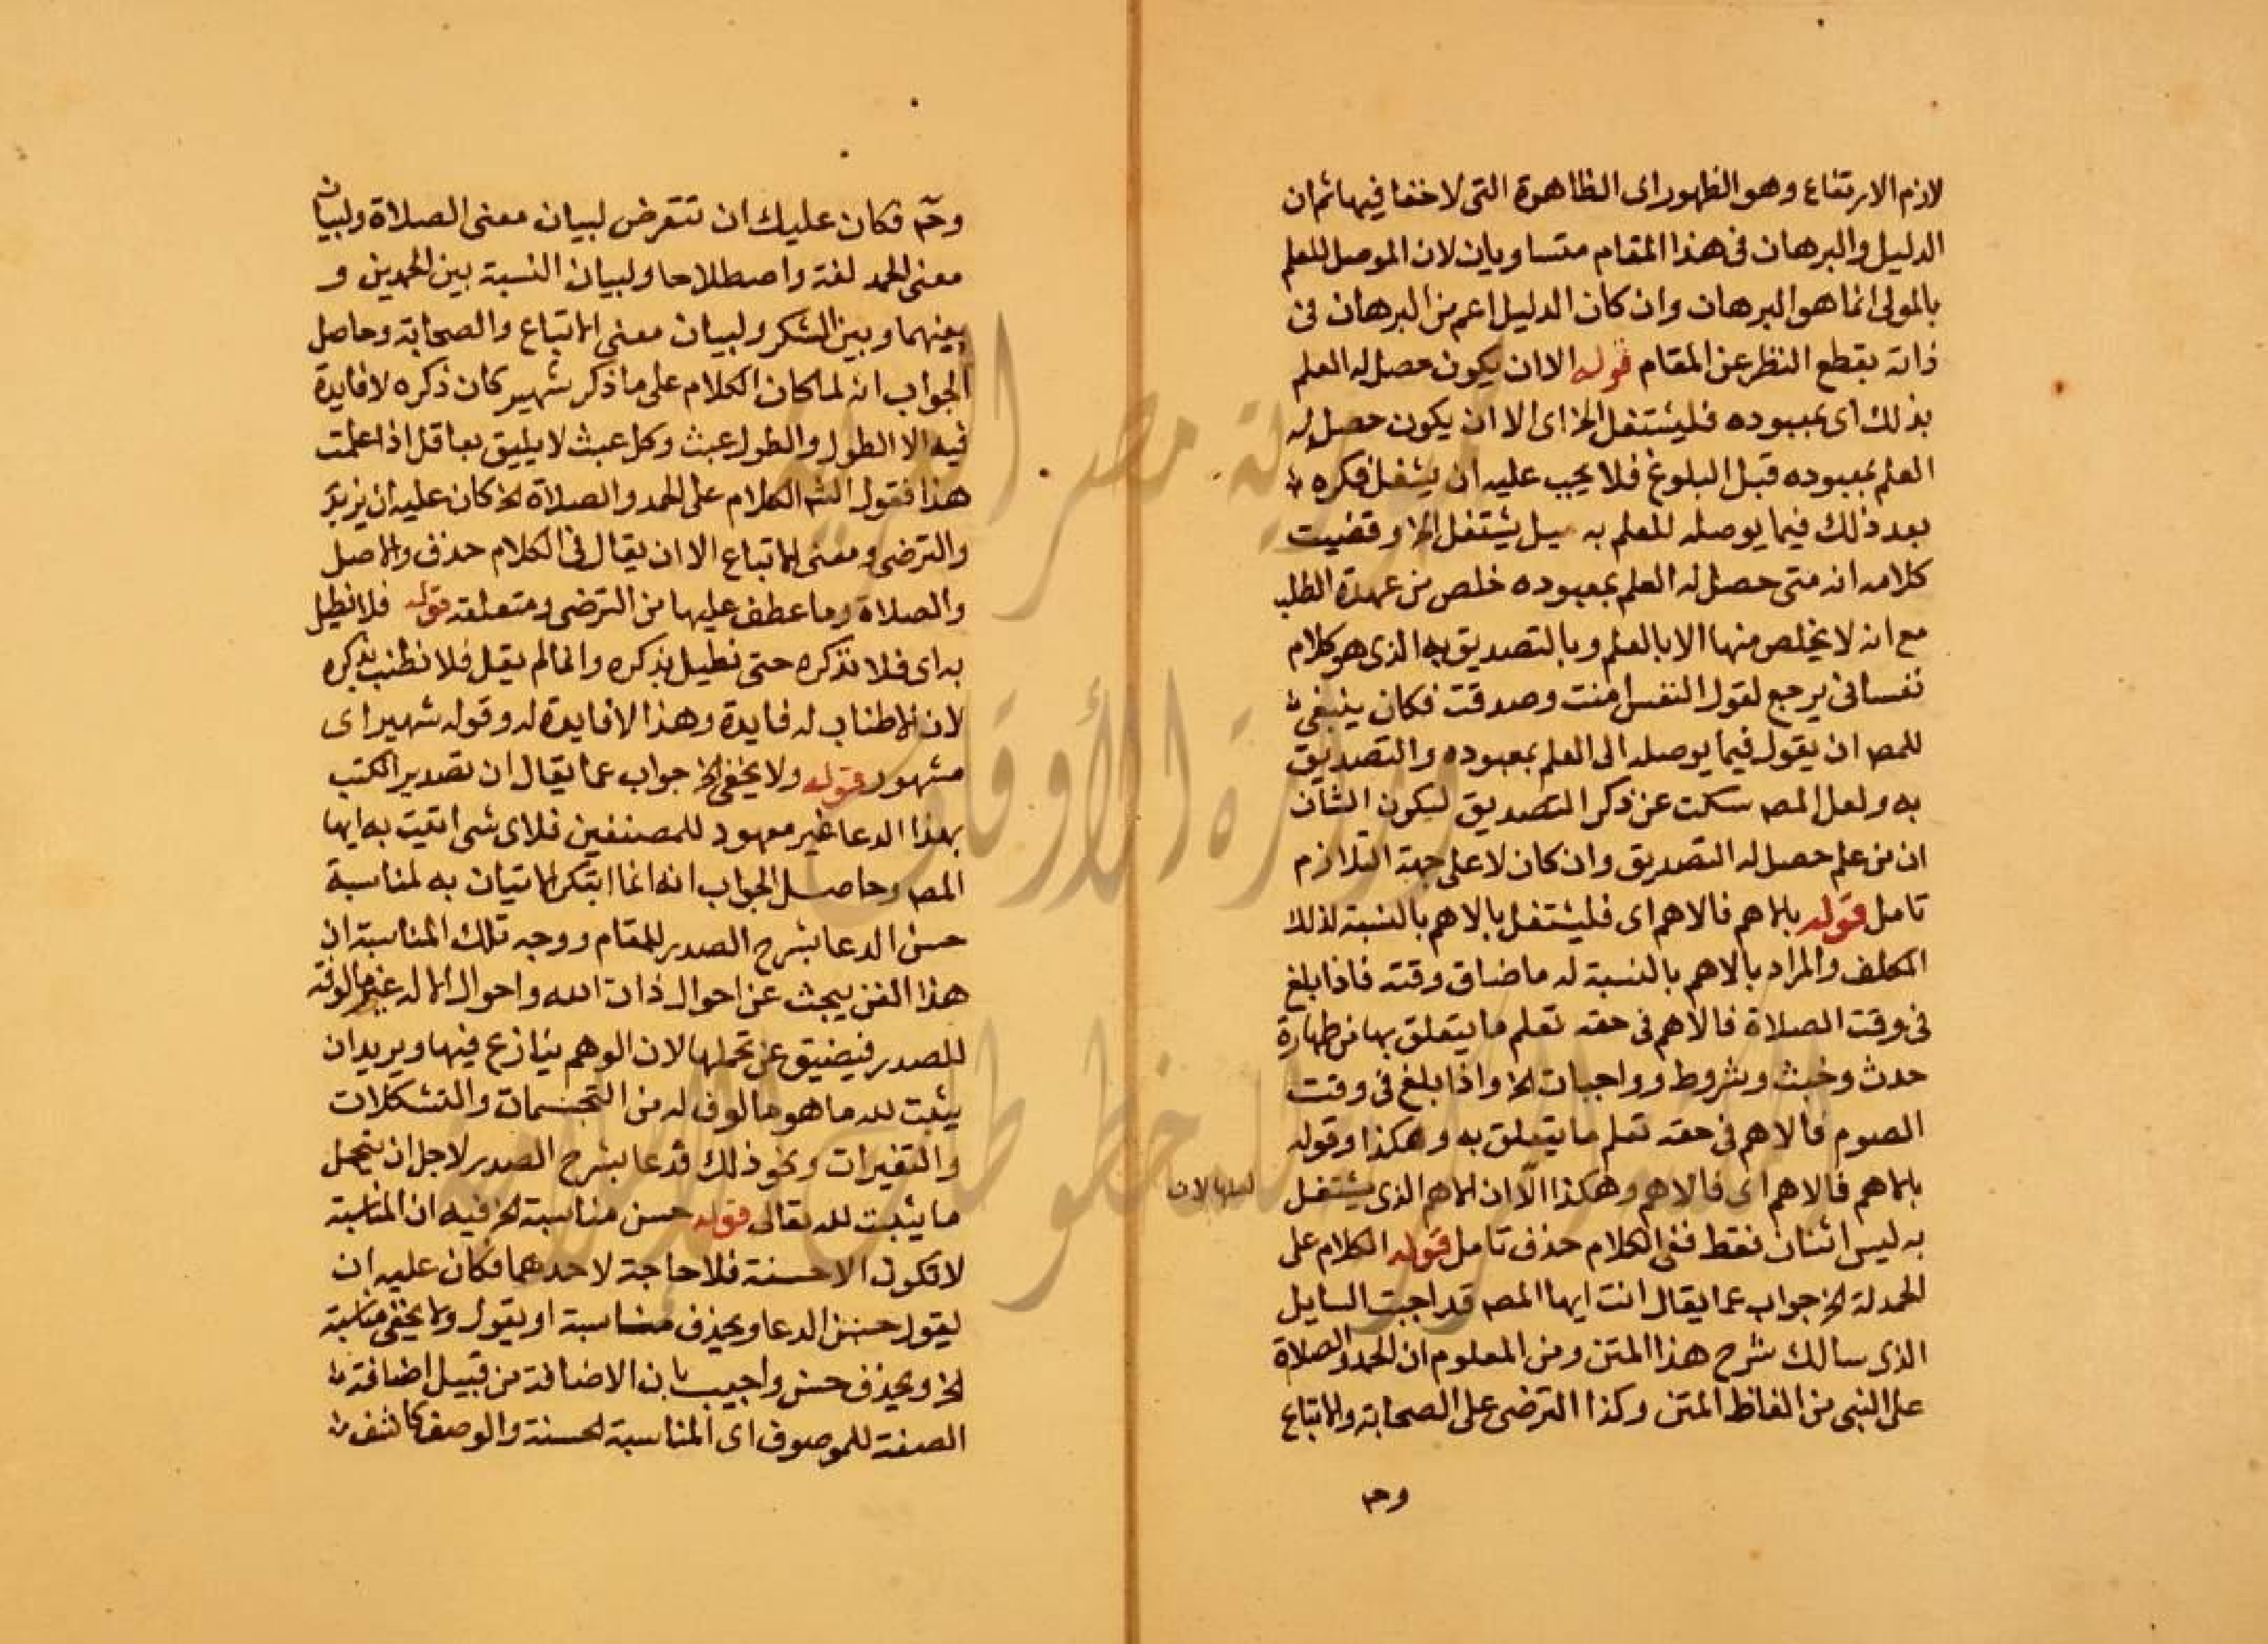 لازم الارتفاع وهو الظهور اى الظاهرة التى لا خفا فيها ثم ان
الدليل والبرهان فى هذا المقام متساويان لان الموصل للعلم
بالمولى انما هو البرهان وان كان الدليل اعم من البرهان فى
ذاته بقطع النظر عن المقام قوله الا ان يكون حصل له العلم
بذلك اى بمعبوده فليشتغل الخ اى الا ان يكون حصل له
العلم بمعبوده قبل البلوغ فلا يجب عليه ان يشغل فكره
بعد ذلك فيما يوصله للعلم به بل يشتغل الخ وقضيت
كلامه انه متى حصل له العلم بمعبوده خلص من عهدة الطلب
مع انه لا يخلص منها الا بالعلم وبالتصديق به الذى هو كلام
نفسانى يرجع لقول النفس امنت وصدقت فكان ينبغى
للمص ان يقول فيما يوصله الى العلم بمعبوده والتصديق
به ولعل المص سكت عن ذكر التصديق ليكون الشان
ان من علم حصل له التصديق وان كان لا على جهة التلازم
تامل قوله بالاهم فالاهم اى فليشتغل بالاهم بالنسبة لذلك
المكلف والمراد بالاهم بالنسبة له ما ضاق وقته فاذا بلغ
فى وقت الصلاة فالاهم فى حقه تعلم ما يتعلق بها من طهارة
حدث وخبث وشروط وواجبات الخ واذا بلغ فى وقت
الصوم فالاهم فى حقه تعلم ما يتعلق به وهكذا وقوله
بالاهم فالاهم اى فالاهم وهكذا الا ان الاهم الذى يشتغل
لعلها لان
به ليس اثنان فقط ففى الكلام حذف تامل قوله الكلام على
الحمدلة الخ جواب عما يقال انت ايها المص قد اجبت السايل
الذى سالك شرح هذا المتن ومن المعلوم ان الحمد والصلاة
على النبى من الفاظ المتن وكذا الترضى على الصحابة والاتباع
وح
وح فكان عليك ان تتعرض لبيان معنى الصلاة ولبيان
معنى الحمد لغة واصطلاحا ولبيان النسبة بين الحمدين و
بينهما وبين الشكر ولبيان معنى الاتباع والصحابة وحاصل
الجواب انه لما كان الكلام على ما ذكر شهير كان ذكره لا فايدة
فيه الا الطول والطول عبث وكل عبث لا يليق بعاقل اذا علمت
هذا فقول الشه الكلام على الحمد والصلاة الخ كان عليه ان يزيد
والترضى ومعنى الاتباع الا ان يقال فى الكلام حذف والاصل
والصلاة وما عطف عليها من الترضى ومتعلقه قوله فلا نطيل
به اى فلا نذكره حتى نطيل بذكره وانما لم يقل فلا نطنب بذكره
لان الاطناب له فايدة وهذا لا فايدة له وقوله شهير اى
مشهور قوله ولا يخفى الخ جواب عما يقال ان تصدير الكتب
بهذا الدعا غير معهود للمصنفين فلاى شى اتيت به ايها
المص وحاصل الجواب انه انما ابتكر الاتيان به لمناسبة
حسن الدعا بشرح الصدر للمقام ووجه تلك المناسبة ان
هذا الفن يبحث عن احوال ذات الله واحوال الاله غير مالوفة
للصدر فيضيق عن تحملها لان الوهم ينازع فيها ويريد ان
يثبت لله ما هو مالوف له من التجسمات والتشكلات
والتغيرات ونحو ذلك فدعا بشرح الصدر لاجل ان يتحمل
ما يثبت لله تعالى قوله حسن مناسبة الخ فيه ان المناسبة
لا تكون الا حسنة فلا حاجة لاحدهما فكان عليه ان
يقول حسن الدعا ويحذف مناسبة او يقول ولا يخفى مناسبة
الخ ويحذف حسن واجيب بان الاضافة من قبيل اضافة
الصفة للموصوف اى المناسبة الحسنة والوصف كاشف